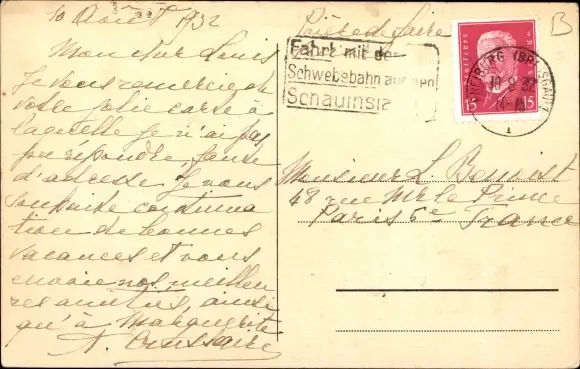 10 Août 1932
Mon cher Louis
Je vous remercie de
votre jolie carte à
laquelle je n'ai pas
pu répondre, faute
d'adresse. Je vous
souhaite continua
tion de bonnes
vacances et vous
envoie nos meilleu
res amitiés, ainsi
qu'à Marguerite
A.
Fahrt mit der
Schwebebahn auf den
Schauinsla
FREIBURG (BREISGAU)
10.8.32
1
15 15
Monsieur L. Benoist
48 rue Mr le Prince
Paris 6e France
B